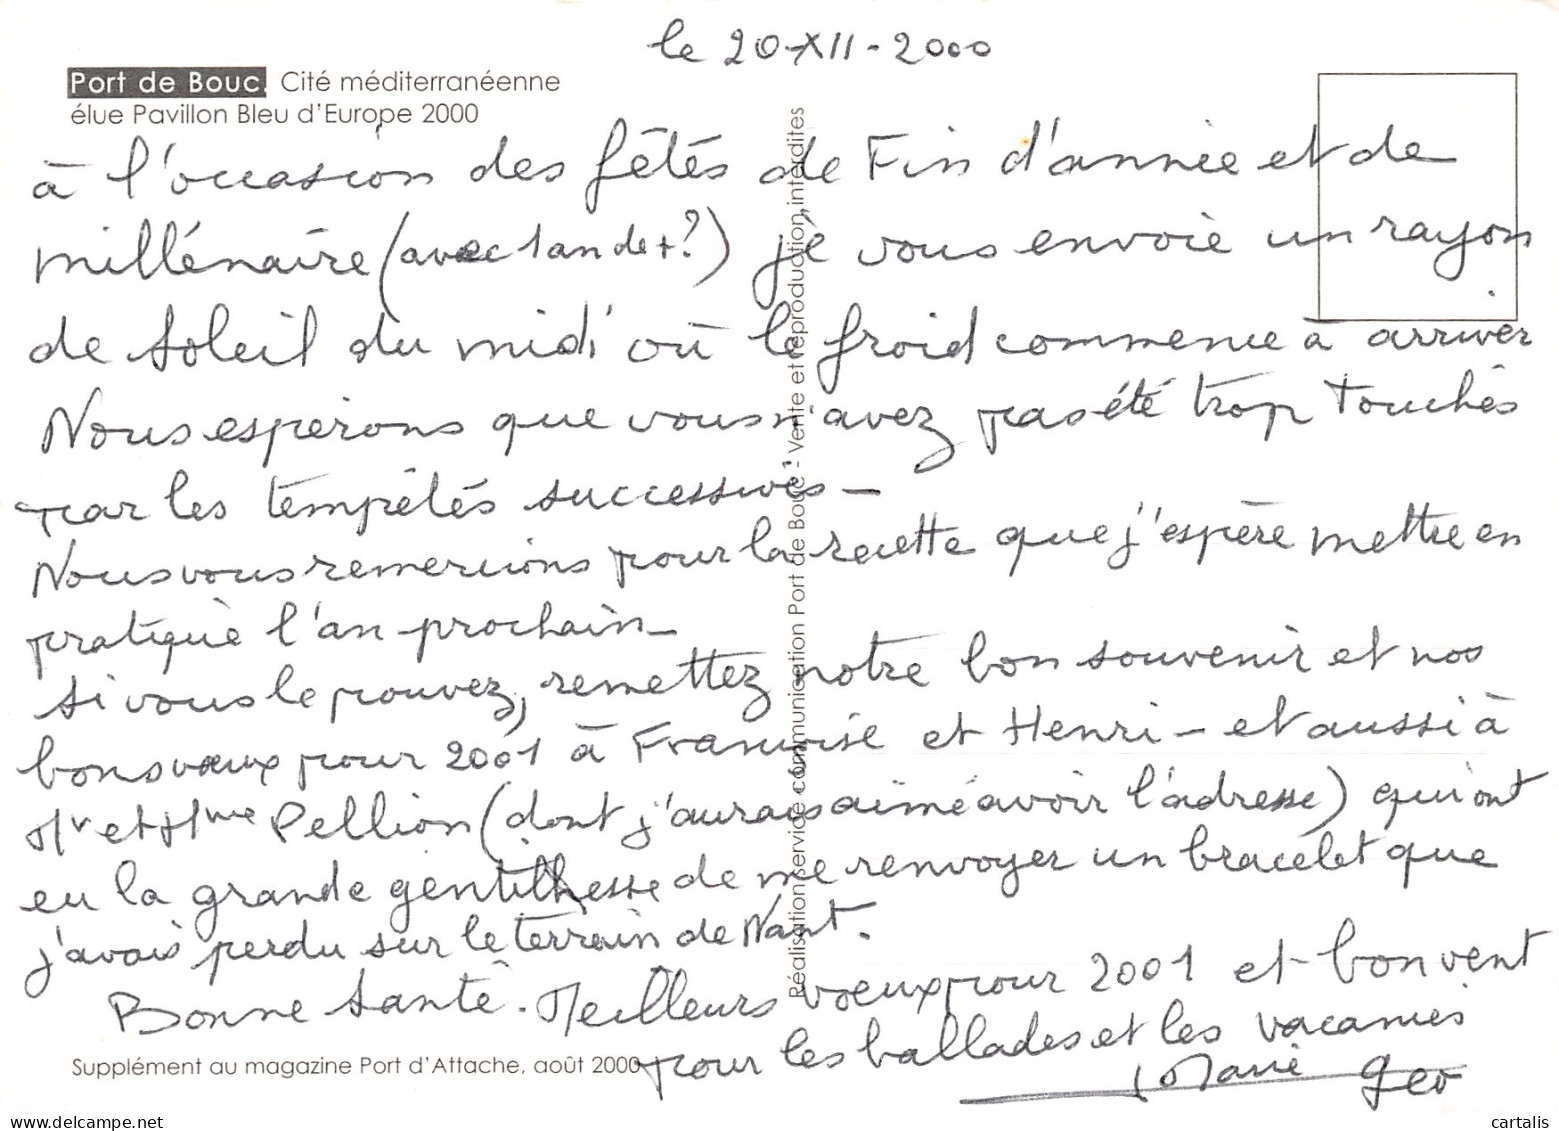 le 20-XII-2000
Port de Bouc. Cité méditerranéenne
élue Pavillon Bleu d'Europe 2000
à l'occasion des fêtes de Fin d'année et de
millénaire (avec 1 an de + ?) je vous envoie un rayon
de soleil du midi où le froid commence à arriver
Nous espérons que vous n'avez pas été trop touchés
par les tempêtes successives -
Nous vous remercions pour la recette que j'espère mettre en
pratique l'an prochain -
si vous le pouvez, remettez notre bon souvenir et nos
bons voeux pour 2001 à Françoise et Henri - et aussi à
Mr et Mme Pellion (dont j'aurais aimé avoir l'adresse) qui ont
eu la grande gentillesse de me renvoyer un bracelet que
j'avais perdu sur le terrain de Nant.
Bonne Santé. Meilleurs voeux pour 2001 et bon vent
pour les ballades et les vacances
Marie Geo
Supplément au magazine Port d'Attache, août 2000
Réalisation service communication Port de Bouc - Vente et reproduction interdites
cartalis